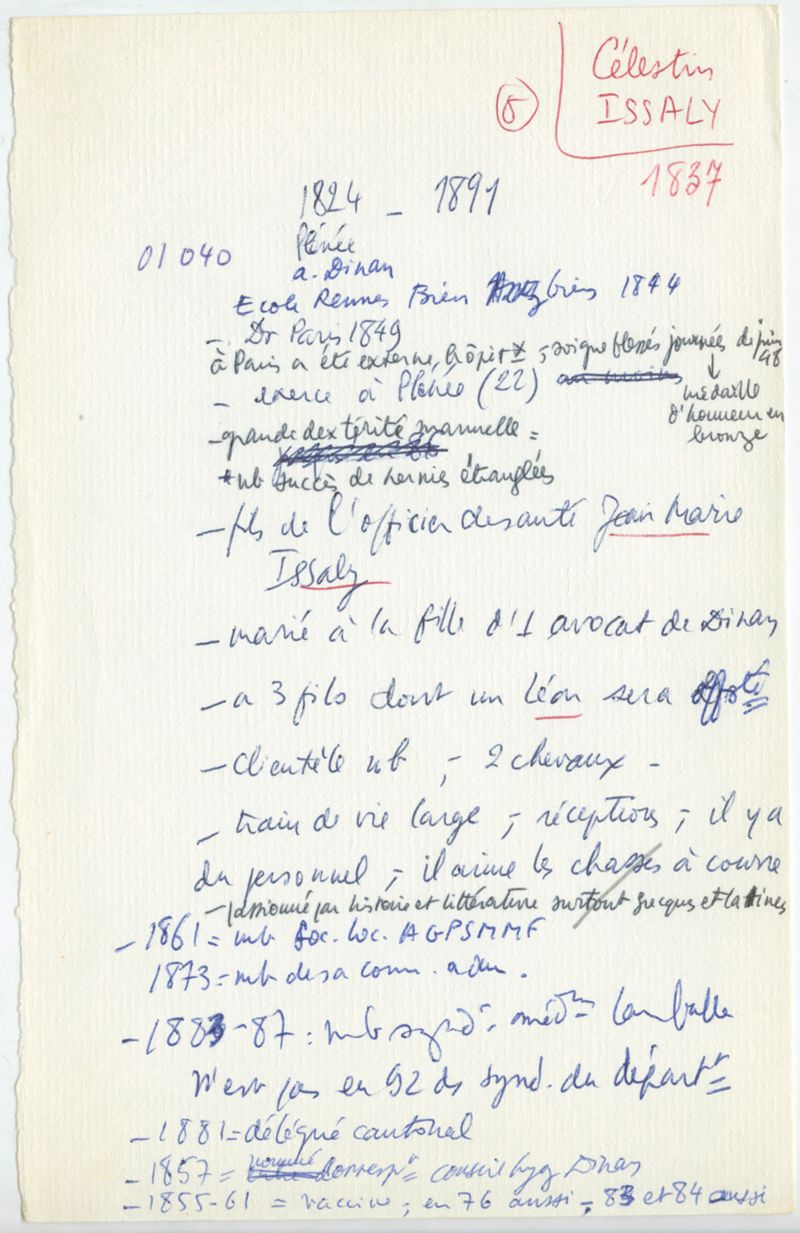 Célestin
⑤ ISSALY
1837
1824 – 1891
01 040
Plénée
a. Dinan
Ecole Rennes 1844
– Dr Paris 1849
à Paris a été externe hôpitx ; soigne blessés journées de juin 48
– exerce à Plénée (22)
médaille
d'honneur en
bronze
– grande dextérité manuelle =
* nb succès de hernies étranglées
– fils de l'officier de santé Jean Marie
Issaly
– marié à la fille d'1 avocat de Dinan
– a 3 fils dont un Léon sera
– clientèle nb ; – 2 chevaux –
– train de vie large ; – réceptions ; – il y a
du personnel ; – il aime les chasses à courre
– passionné par histoire et littérature surtout grecques et latines
– 1861 = mb Soc. loc. AGPSMMF
1873 = mb de sa comm. adm.
– 1883-87 : mb synd. méd. Lamballe
N'est pas en 92 ds synd. du départt
– 1881 = délégué cantonal
– 1857 = corresp. conseil hyg Dinan
– 1855-61 = vaccine ; en 76 aussi – 83 et 84 aussi